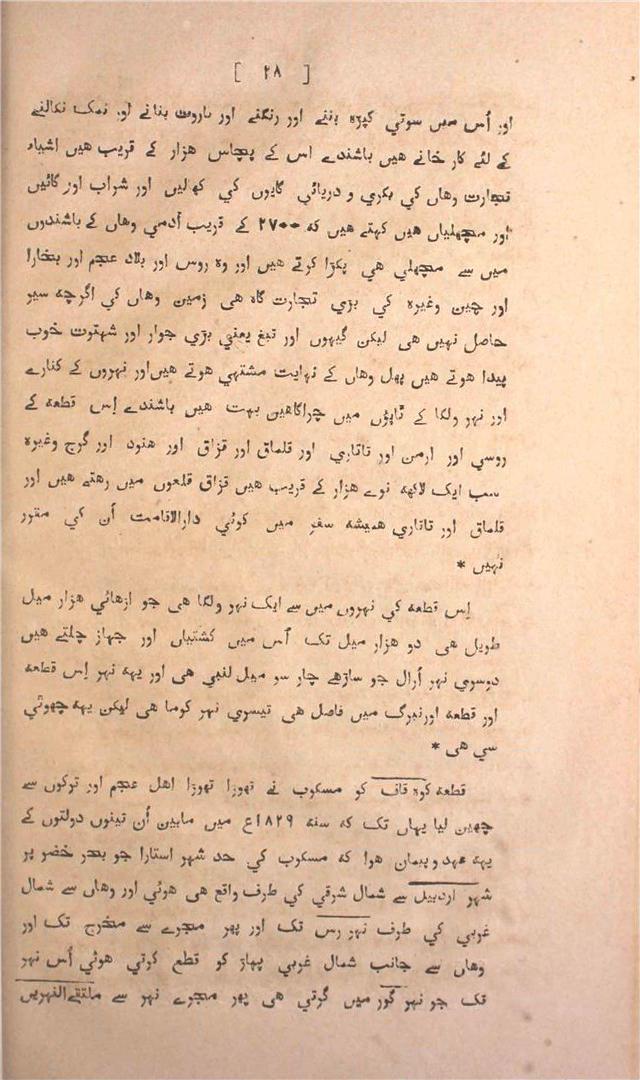 [ ۲۸ ]
اور اُس میں سوتي کپڑہ بننے اور رنگنے اور باروت بنانے اور نمک نکالنے
کے لئے کار خانے هیں باشندے اس کے پچاس هزار کے قریب هیں اشیاء
تجارت وهاں کي بکري و دریائي گایوں کي کھالیں اور شراب اور گائیں
اور مچھلیاں هیں کہتے هیں کہ ۲۷۰۰ کے قریب آدمي وهاں کے باشندوں
میں سے مچھلي هي پکڑا کرتے هیں اور وہ روس اور بلاد عجم اور بخارا
اور چین وغیرہ کي بڑي تجارت گاہ هی زمین وهاں کي اگرچہ سیر
حاصل نہیں هی لیکن گیہوں اور تبغ یعنے بڑي جوار اور شہتوت خوب
پیدا هوتے هیں پھل وهاں کے نہایت مشتہي هوتے هیں اور نہروں کے کنارے
اور نہر ولگا کے ٹاپؤں میں چراگاهیں بہت هیں باشندے اِس قطعہ کے
روسي اور ارمن اور تاتاري اور قلماق اور قزاق اور هنود اور گرج وغیرہ
سب ایک لاکھہ نوے هزار کے قریب هیں قزاق قلعوں میں رهتے هیں اور
قلماق اور تاتاري همیشہ سفر میں کوئي دارالاقامت اُن کي مقرر
نہیں *
اِس قطعہ کي نہروں میں سے ایک نہر ولگا هی جو اڑهائي هزار میل
طویل هی دو هزار میل تک اُس میں کشتیاں اور جہاز چلتے هیں
دوسري نہر اُرال جو ساڑهے چار سو میل لنبي هی اور یہہ نہر اِس قطعہ
اور قطعہ اورنبرگ میں فاصل هی تیسري نہر کوما هی لیکن یہہ چھوٹي
سي هی *
قطعہ کوہ قاف کو مسکوب نے تھوڑا تھوڑا اهل عجم اور ترکوں سے
چھین لیا یہاں تک کہ سنہ ۱۸۲۹ع میں مابین اُن تینوں دولتوں کے
یہہ عہد و پیمان هوا کہ مسکوب کي حد شہر استارا جو بحر خضر پر
شہر اردبیل سے شمال شرقي کي طرف واقع هی هوئي اور وهاں سے شمال
غربي کي طرف نہر رس تک اور پھر مجرے سے مخرج تک اور
وهاں سے جانب شمال غربي پہاڑ کو قطع کرتي هوئي اُس نہر
تک جو نہر گور میں گرتي هی پھر مجرے نہر سے ملتقےالنہریں